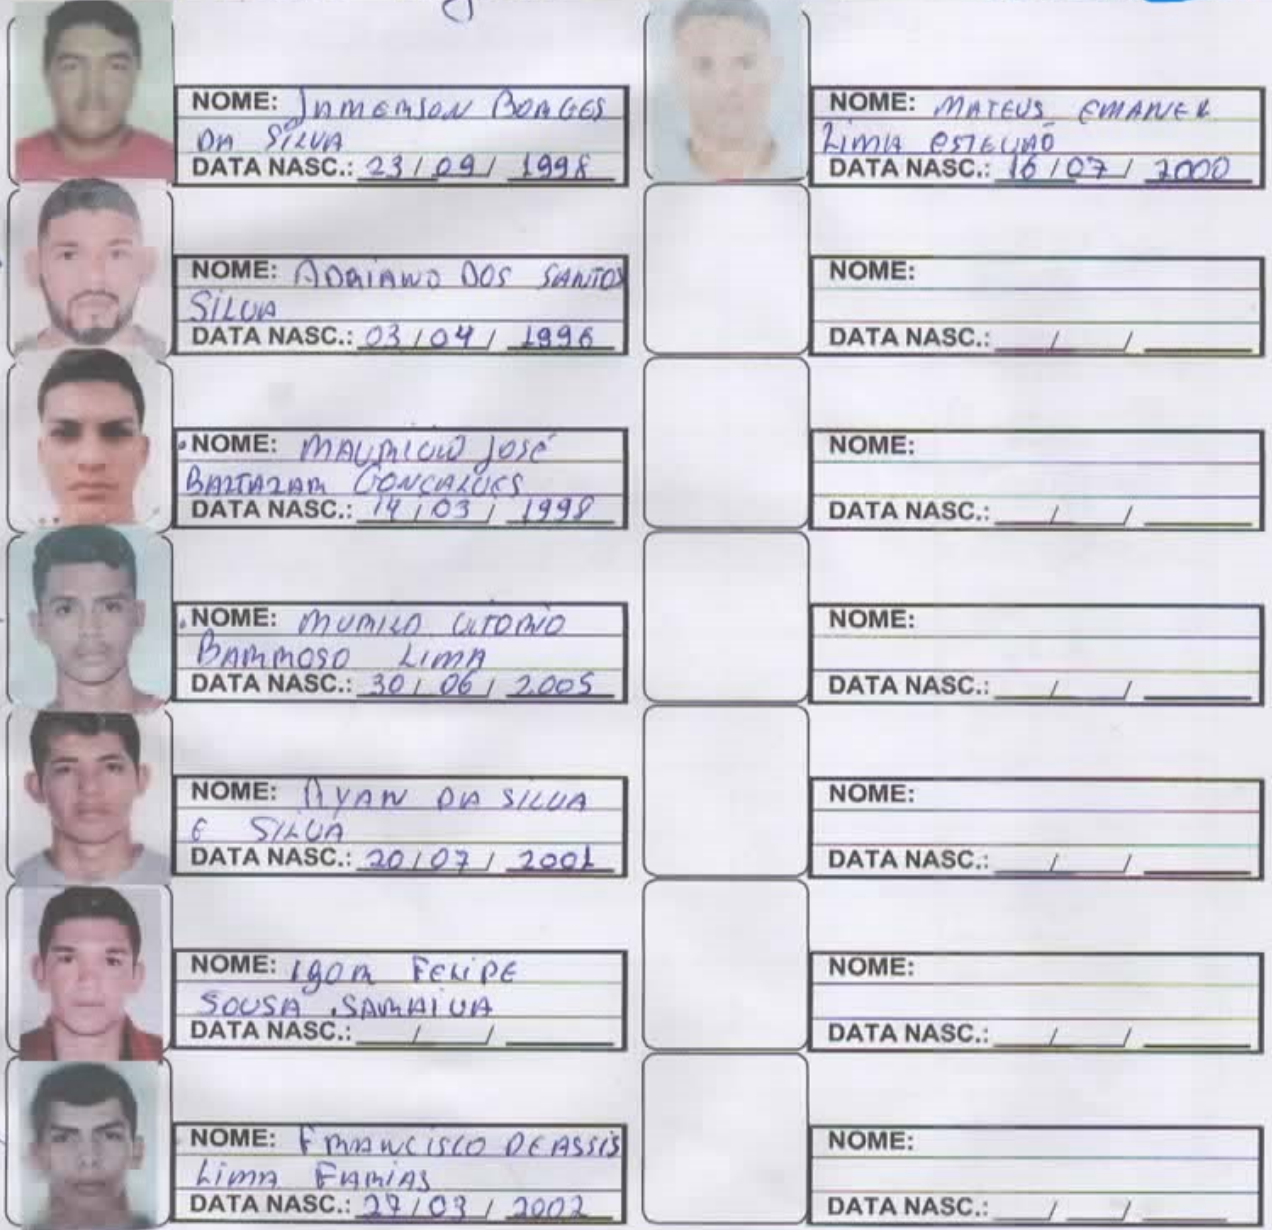 NOME: JAMERSON BORGES
DA SILVA
DATA NASC.: 23 / 09 / 1998
NOME: ADRIANO DOS SANTOS
SILVA
DATA NASC.: 03 / 04 / 1996
NOME: MAURICIO JOSÉ
BALTAZAR GONCALVES
DATA NASC.: 14 / 03 / 1998
NOME: MURILO VITORIO
BARROSO LIMA
DATA NASC.: 30 / 06 / 2005
NOME: RYAN DA SILVA
E SILVA
DATA NASC.: 20 / 07 / 2001
NOME: IGOR FELIPE
SOUSA SARAIVA
DATA NASC.: / /
NOME: FRANCISCO DE ASSIS
LIMA FARIAS
DATA NASC.: 27 / 03 / 2002
NOME: MATEUS EMANUEL
LIMA ESTEVÃO
DATA NASC.: 16 / 07 / 2000
NOME:
DATA NASC.: / /
NOME:
DATA NASC.: / /
NOME:
DATA NASC.: / /
NOME:
DATA NASC.: / /
NOME:
DATA NASC.: / /
NOME:
DATA NASC.: / /